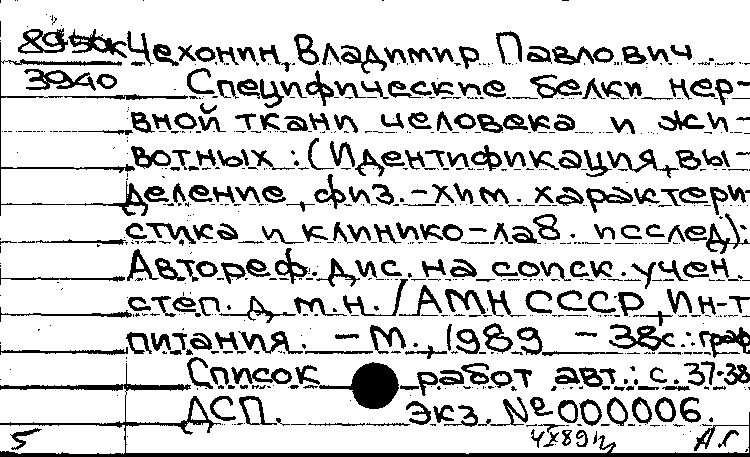 Чехонин, Владимир Павлович.
3940 Специфические белки нер-
вной ткани человека и жи-
вотных : (Идентификация, вы-
деление, физ.-хим. характери
стика и клинико-лаб. исслед.):
Автореф. дис. на соиск. учен.
степ. д. м. н. / АМН СССР, Ин-т
питания. - М., 1989 - 38с.: граф
Список работ авт.: с. 37-38
ДСП. Экз. № 000006.
5 А.Г